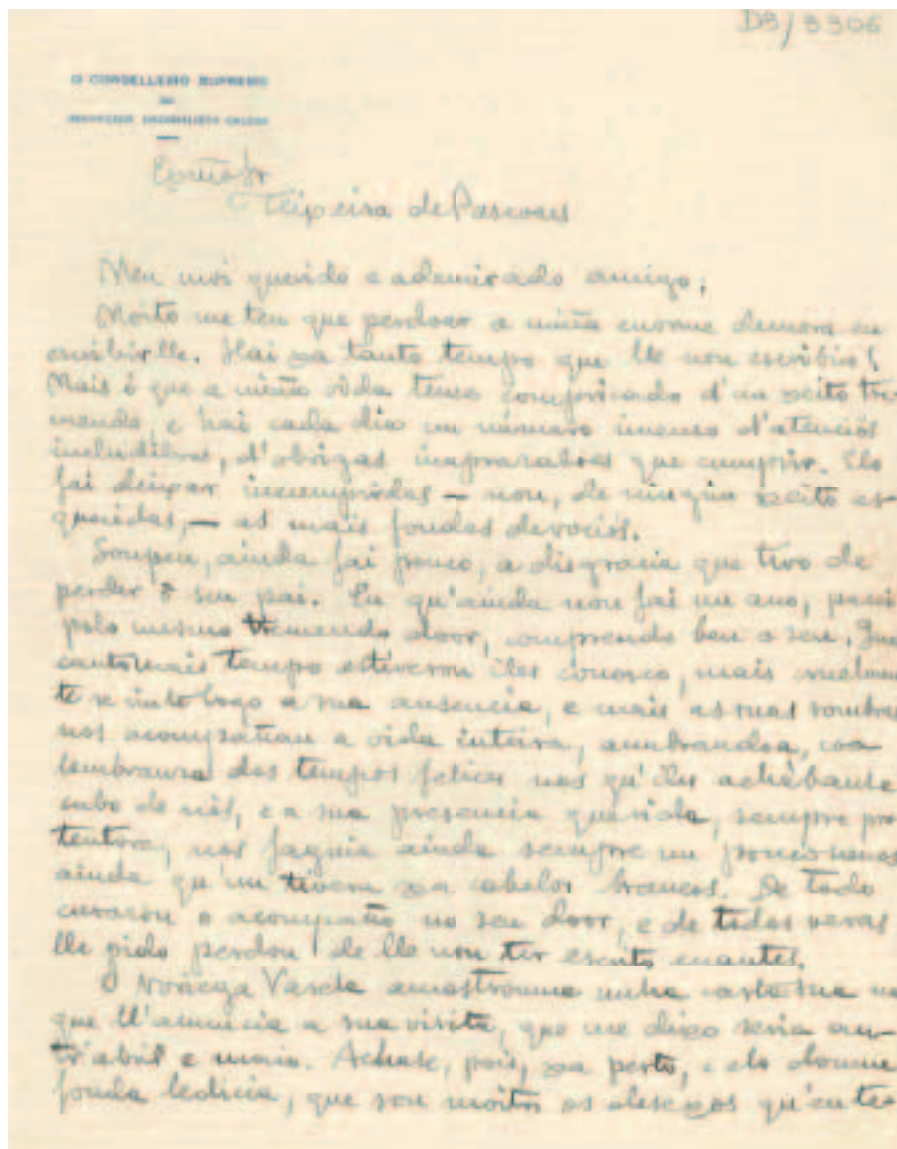 D3/3306
O CONSELLEIRO SUPREMO
Teixeira de Pascoaes
Meu moi querido e ademirado amigo:
Moito me ten que perdoar a miña enorme demora en
escribirlle. Hai xa tanto tempo que lle non escribin!
Mais é que a miña vida tense compricado d'un xeito tre-
mendo, e hai cada dia un número imenso d'atenciós
ineludibres, d'obrigas inaprazabres que cumprir. Elo
fai deixar incumpridas — non, de ningún xeito es-
quencidas, — as mais fondas devociós.
Soupen, ainda fai pouco, a disgracia que tivo de
perder ó seu pai. Eu qu'ainda non fai un ano, pasei
polo mesmo tremendo door, comprendo ben o seu. Que
canto mais tempo estiveron iles conosco, mais cruelmen-
te se sinte logo a sua ausencia, e mais as suas sombras
nos acompañan a vida inteira, coa
lembranza dos tempos felices nos qu'iles
cabo de nós, e a sua presencia querida, sempre pro-
tentora, nos faguia ainda sempre un pouco nenos
ainda qu'un tivera xa cabelos brancos. De todo
corazon o acompaño no seu door, e de todas veras
lle pido perdon de lle non ter escrito enantes.
O Noriega Varela amostroume unha carta sua na
que ll'anuncia a sua visita, que me dixo seria an-
tr'abril e maio. Achase, pois, xa perto, e elo doume
fonda ledicia, que son moitos os desexos qu'eu te-